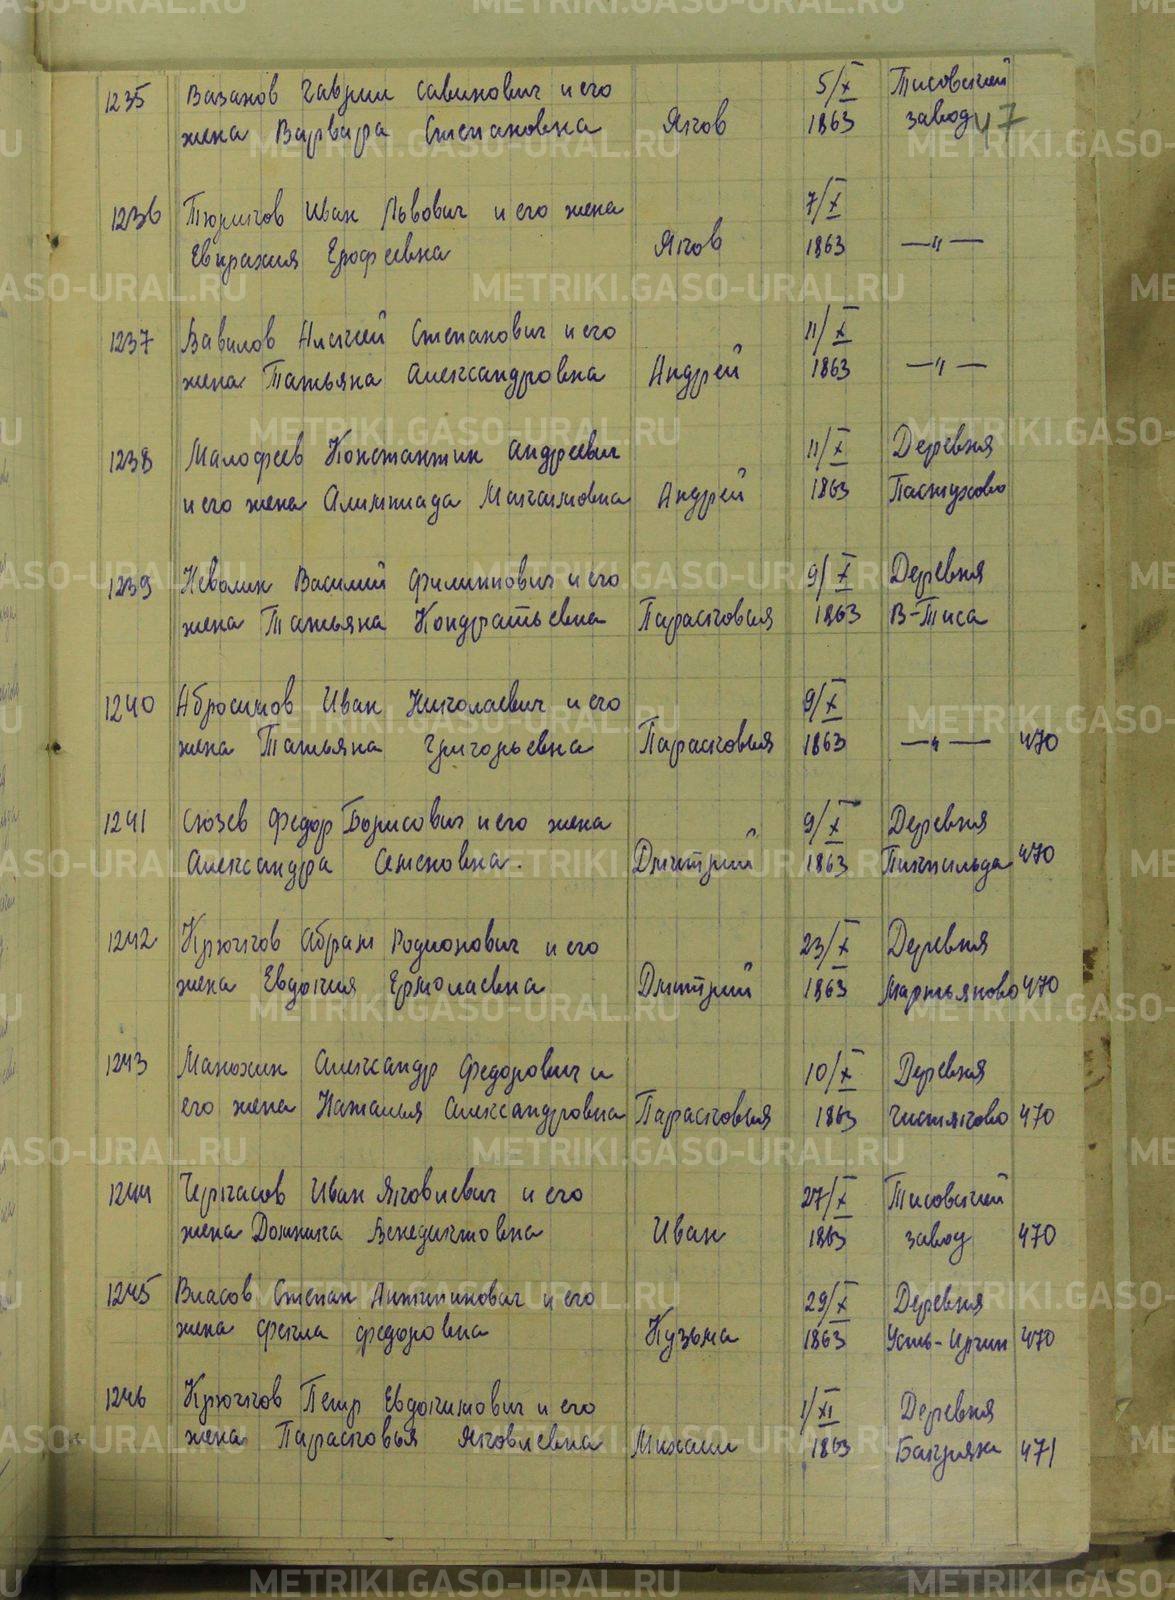 1235 Вазанов Гаврил Савинович и его 5/X Тисовский
жена Варвара Степановна Яков 1863 завод 47
1236 Тюриков Иван Львович и его жена 7/X
Евпраксия Ерофеевна Яков 1863 —"—
1237 Вавилов Алексей Степанович и его 11/X
жена Татьяна Александровна Андрей 1863 —"—
1238 Малофеев Константин Андреевич 11/X Деревня
и его жена Алимпиада Максимовна Андрей 1863 Пастухово
1239 Неволин Василий Филиппович и его 9/X Деревня
жена Татьяна Кондратьевна Парасковья 1863 В-Тиса
1240 Абросимов Иван Николаевич и его 9/X
жена Татьяна Григорьевна Парасковья 1863 —"— 470
1241 Сюзев Федор Борисович и его жена 9/X Деревня
Александра Семеновна. Дмитрий 1863 470
1242 Крючков Абрам Родионович и его 23/X Деревня
жена Евдокия Ермолаевна Дмитрий 1863 Мартьяново 470
1243 Манохин Александр Федорович и 10/X Деревня
его жена Наталья Александровна Парасковья 1863 Чистяково 470
1244 Черкасов Иван Яковлевич и его 27/X Тисовский
жена Домника Венедиктовна Иван 1863 завод 470
1245 Власов Степан Антипинович и его 29/X Деревня
жена Фекла Федоровна Кузьма 1863 Усть-Иргин 470
1246 Крючков Петр Евдокимович и его 1/XI Деревня
жена Парасковья Яковлевна Михаил 1863 Бакряж 471
METRIKI.GASO-URAL.RU